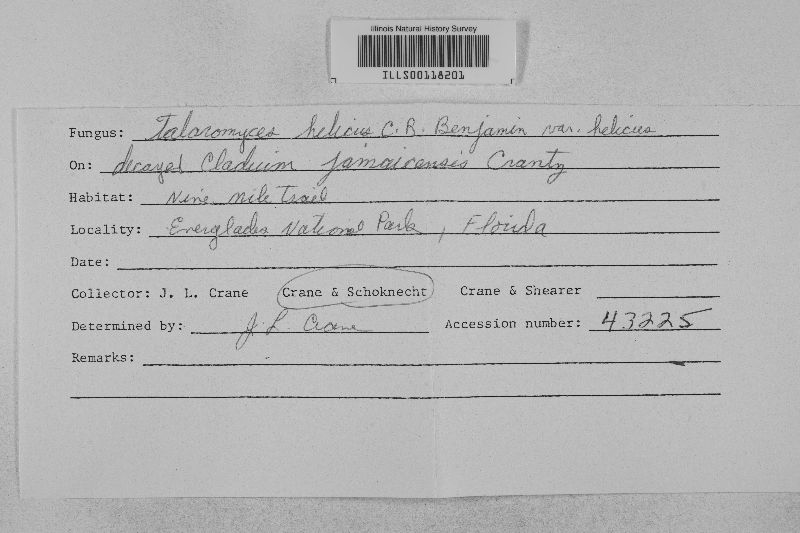 Illinois Natural History Survey
ILLS00118201
Fungus: Talaromyces helicus C. R. Benjamin var. helicus
On: decayed Cladium jamaicensis Crantz
Habitat: Nine mile Trail
Locality: Everglades National Park, Florida
Date:
Collector: J. L. Crane Crane & Schoknecht Crane & Shearer
Determined by: J. L. Crane Accession number: 43225
Remarks: